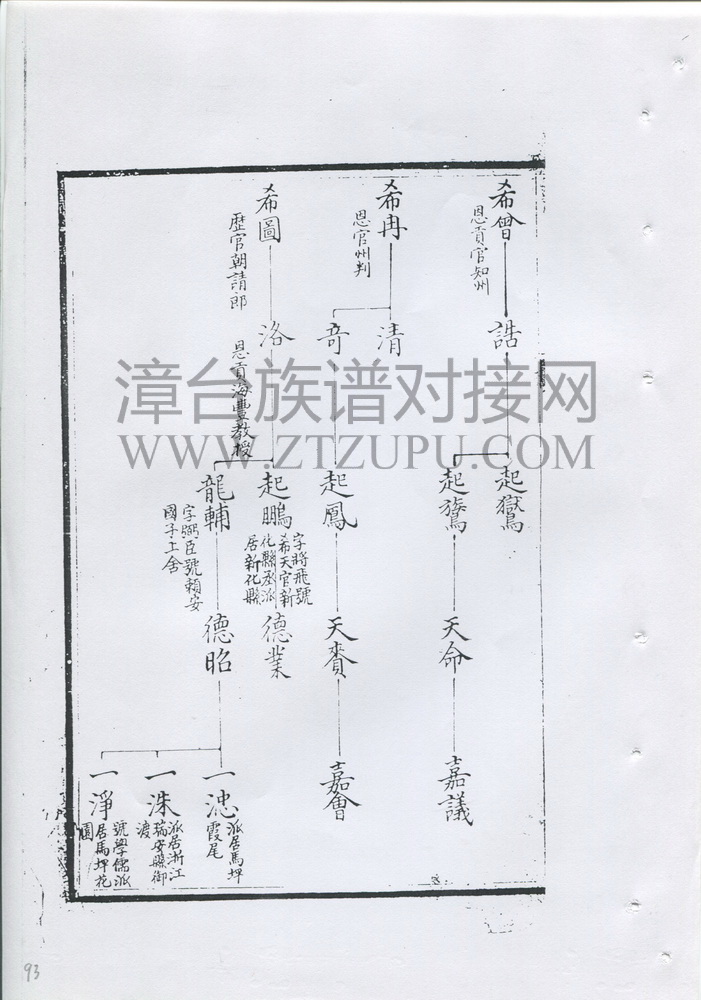 希曾
恩貢官知州
誥
起鸑
起鷟
天命
嘉議
希冉
恩官州判
清
竒
起鳳
天賚
嘉會
希圖
歷官朝請郎
洛
恩貢海豐教授
起鵬
字將飛號
希天官新
化縣丞派
居新化縣
德業
龍輔
字弼臣號賴安
國子上舍
德昭
一漶
派居馬坪
霞尾
一洙
派居浙江
瑞安縣御
渡
一淨
號學儒派
居馬坪花
園
漳台族谱对接网
WWW.ZTZUPU.COM
93